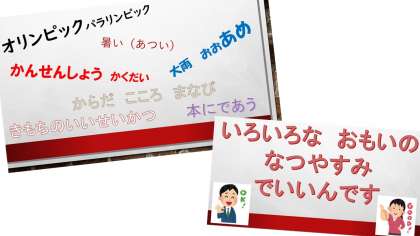 オリンピック パラリンピック
暑い（あつい）
かんせんしょう かくだい
大雨 おおあめ
からだ こころ まなび
きもちのいいせいかつ
本にであう
いろいろな おもいの
なつやすみ
でいいんです
OK!
GOOD!